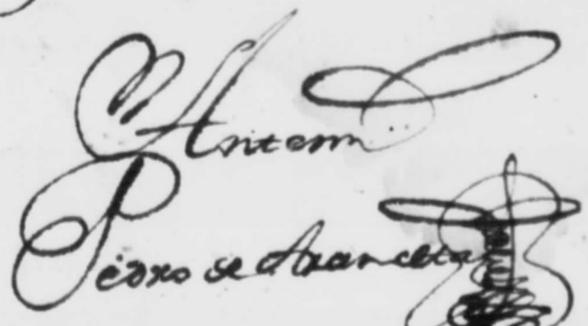 Antem
Pedro de Aranceta